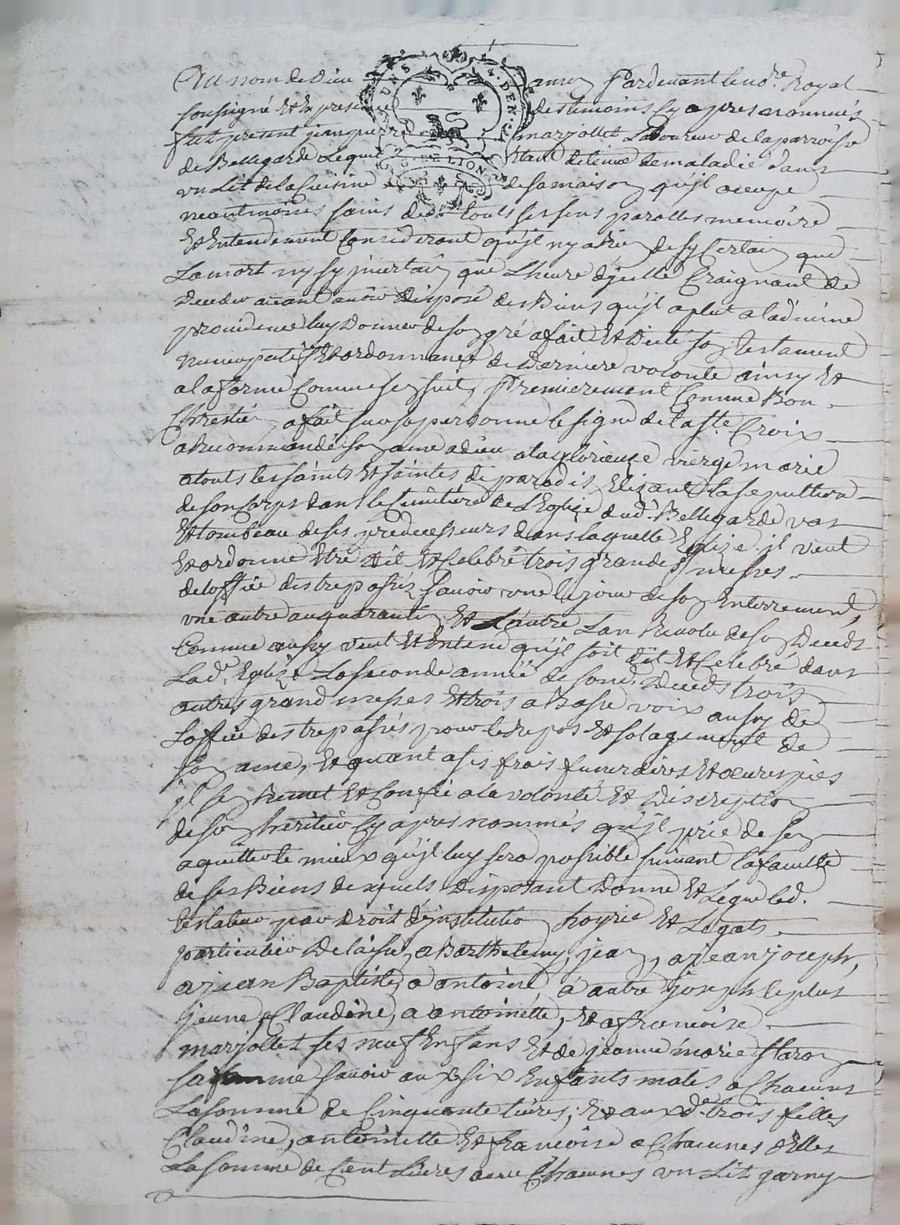 Au nom de Dieu amen Pardevant le no.re Royal
soussigné et en presence des temoins cy apres nommés
fut present jean pierre marjollet Laboureur de la parroisse
de Bellegarde Lequel Etant detenu de maladie dans
un Lit de la Cuisine de sa maison qu'jl occupe
neantmoires sains de touts ses sens parolles memoire
Et Entendement Considerant qu'jl ny a Rien de sy Certain que
La mort ny sy jncertain que L'heure d'jcelle Craignant de
deceder avant avoir disposé des Biens qu'jl a plut a la divine
providence luy Donner de son gré a fait Et Dicté son testament
nuncupatif Et ordonnance de Derniere volonté ainsy Et
a la forme Comme sensuit Premierement Comme Bon
Chrestien a fait sur sa personne le signe de la ste. Croix
a Recommandé son ame a dieu a la glorieuse vierge marie
a touts les saints Et saintes de paradis Elisant la sepulture
de son Corps dans le Cimetiere de L'Eglise dud. Bellegarde
Et tombeau de ses predecesseurs dans laquelle Eglise jl veut
Et ordonne Etre dit Et Celebré trois grandes messes
de l'office des trepassés savoir une le jour de son Enterrement,
une autre au quarantin, Et L'autre L'an Revolu de son Deceds
Comme aussy veut Et Entend qu'jl soit dit Et Celebré dans
Lad.e Eglise La seconde année de sond. Deceds trois
autres grand messes Et trois a Basse voix aussy de
L'office des trepassés pour le repos Et solagement de
son ame, Et quant a ses frais funeraires Et oeuvres pies
jl se Remet Et Confie a la volonté Et Discreption
de son heritier cy apres nommés qu'jl prie de s'en
aquitter le mieux qu'jl luy sera possible suivant la faculté
de ses Biens desquels disposant Donne Et Legue led.
testateur par Droit d'institution hoyrie Et Legats
particulier delaissé, a Barthelemy, jean, a jean joseph,
a jean Baptiste, a antoine a autre joseph le plus
jeune, Claudine, a antoinette, Et a francoise
marjollet ses neuf Enfans Et de jeanne marie
sa femme savoir aux six Enfants males a Chacuns
La somme de Cinquante livres; Et aux d.e trois filles
Claudine, antoinette Et francoise a Chacunes d'Elles
La somme de Cent Livres avec Chacunes un Lit garny